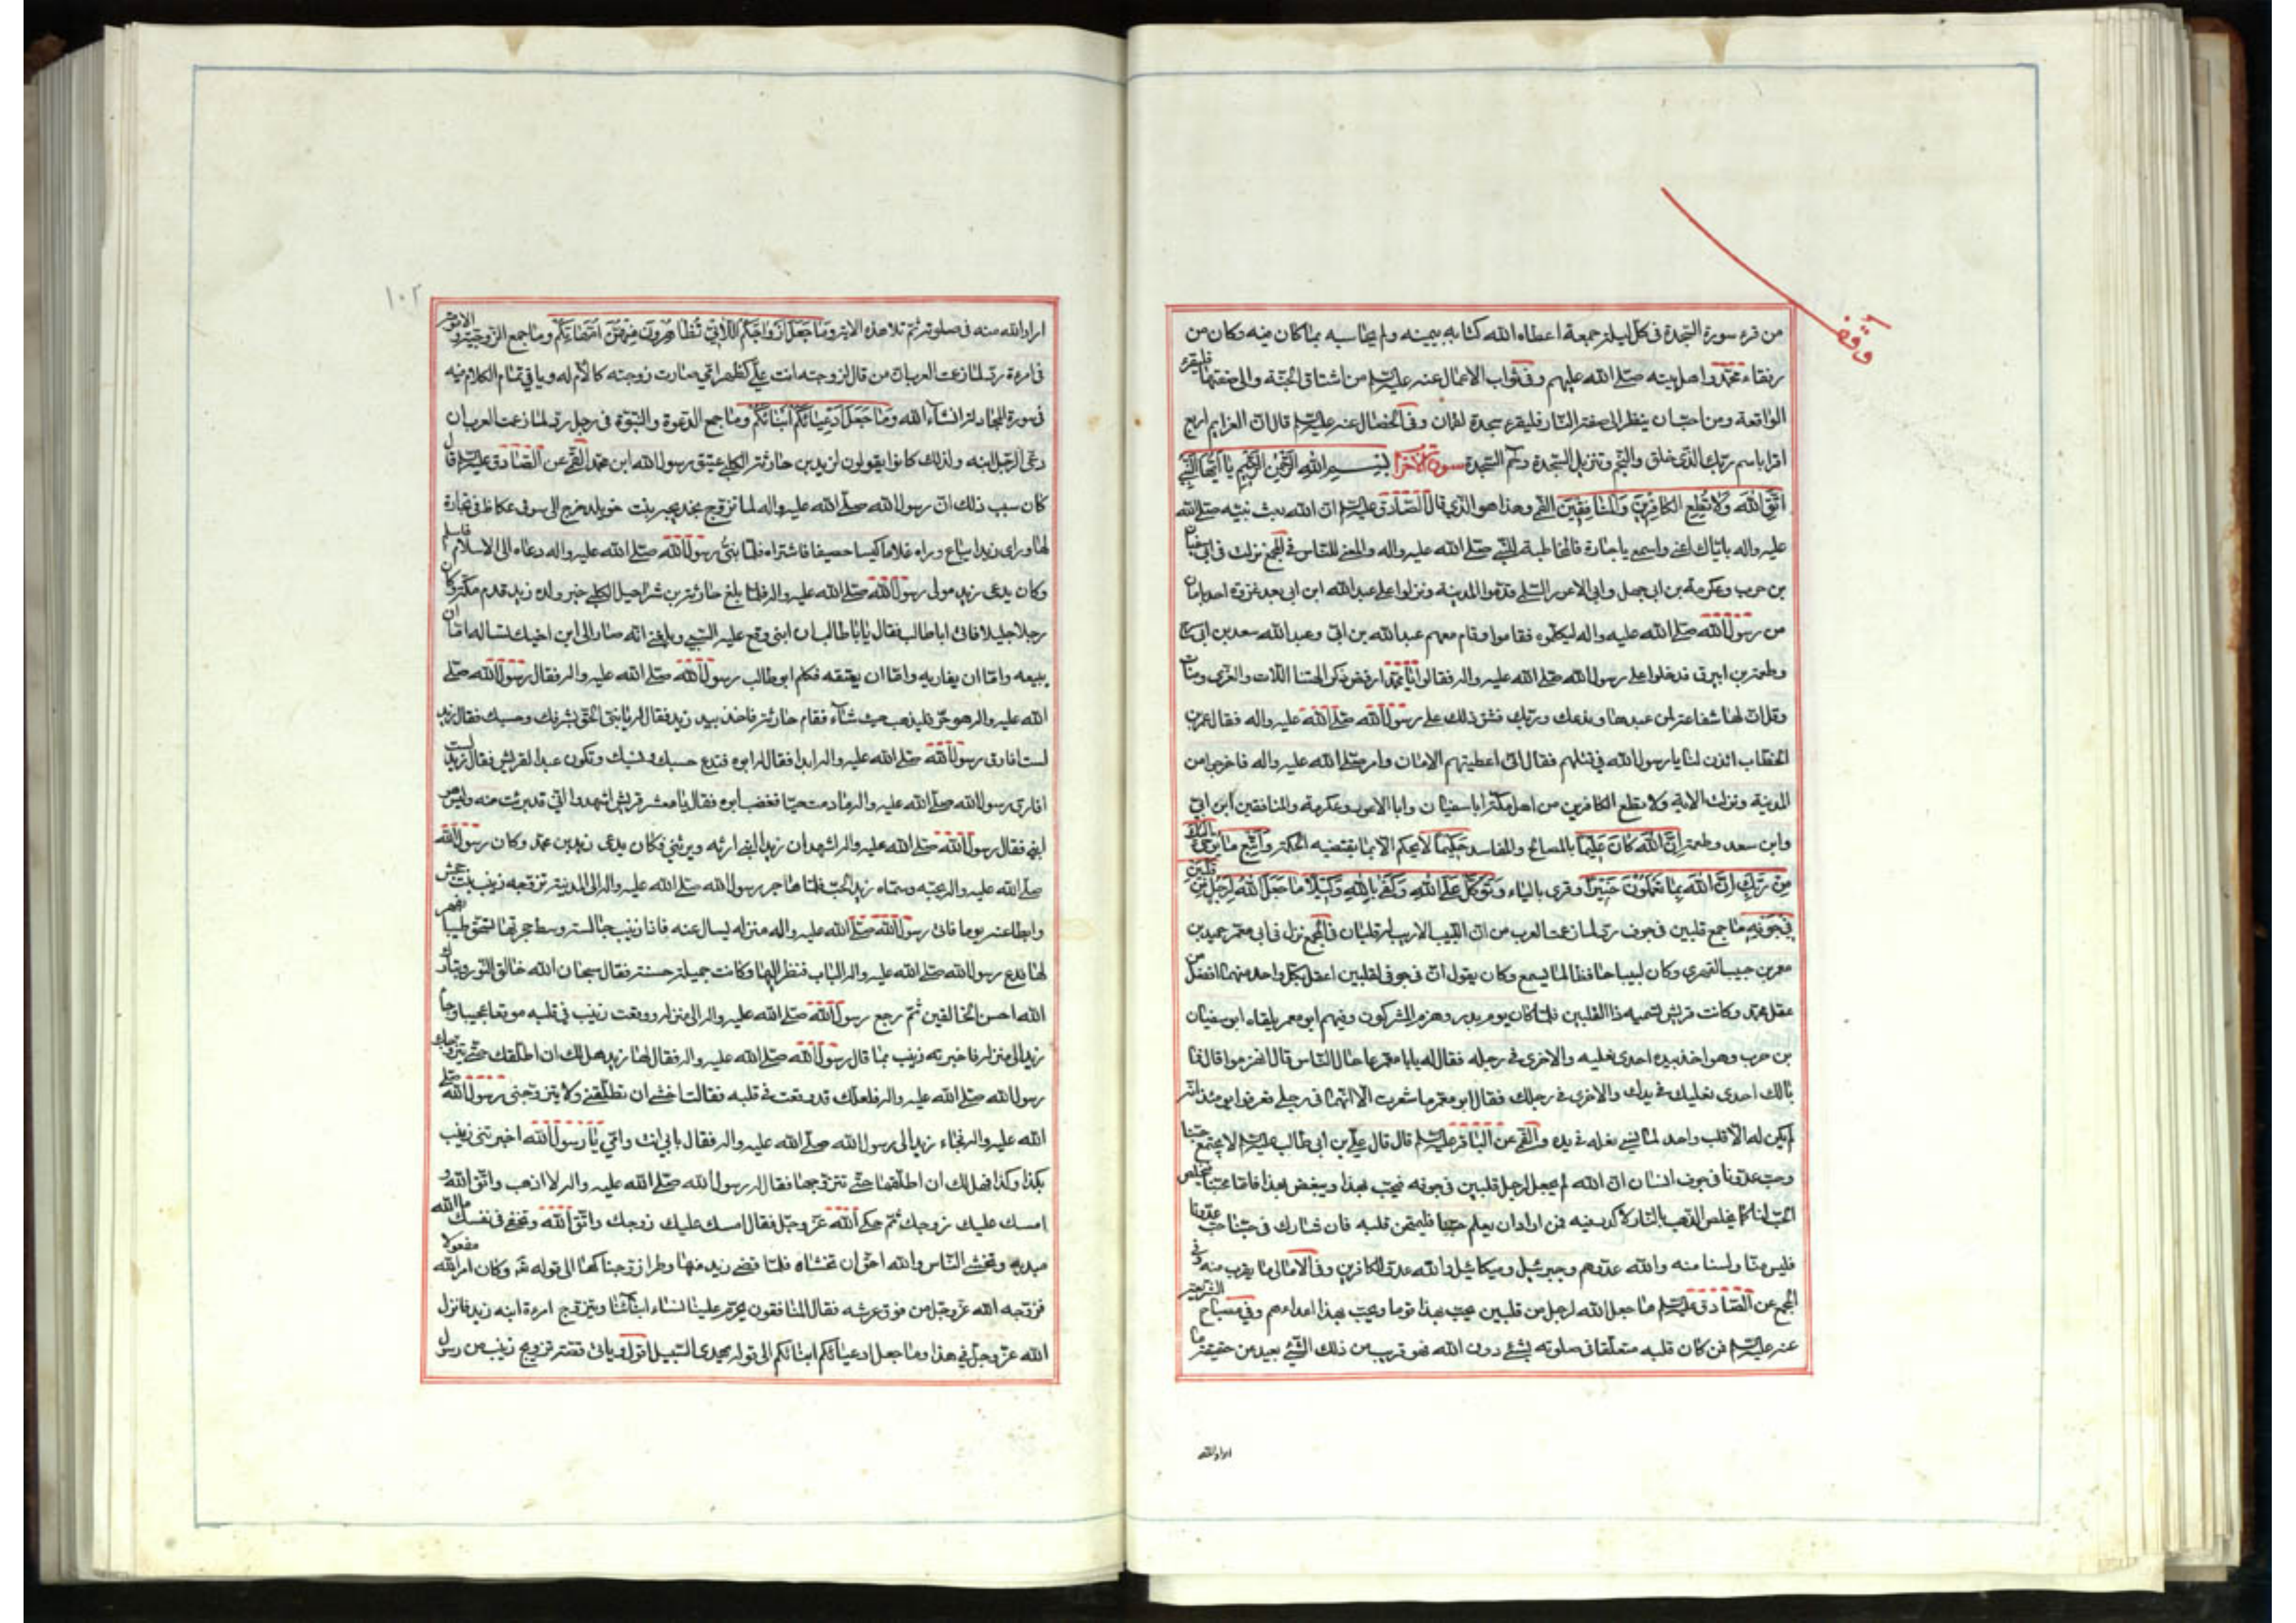 وقف
من قرء سورة السّجدة فى كلّ ليلة جمعة اعطاه الله كتابه بيمينه ولم يحاسبه بما كان منه وكان من
رفقاء محمّد واهل بيته صلّى الله عليهم وفى ثواب الاعمال عنه عليه السّلم من اشتاق الى الجنّة والى صفتها فليقرء
الواقعة ومن احبّ ان ينظر الى صفة النّار فليقرء سجدة لقمان وفى الخصال عنه عليه السّلم قال انّ العزايم اربع
اقرا باسم ربّك الّذى خلق والنّجم وتنزيل السّجدة وحم السّجدة سورة الاحزاب بِسْمِ اللهِ الرَّحْمٰنِ الرَّحِيمِ يَا اَيُّهَا النَّبِىُّ
اتَّقِ اللهَ وَلَا تُطِعِ الكَافِرِينَ وَالْمُنَافِقِينَ القمّى وهذا هو الّذى قال الصّادق عليه السّلم انّ الله بعث نبيّه صلّى الله
عليه واله بايّاك اعنى واسمعى يا جارة فالمخاطبة للنّبىّ صلّى الله عليه واله والمعنى للنّاس فى المجمع نزلت فى ابى سفيان
بن حرب وعكرمة بن ابى جهل وابى الاعور السّلمى قدموا المدينة ونزلوا على عبد الله ابن ابى بعد غزوة احد بامان
من رسول الله صلّى الله عليه واله ليكلّموه فقاموا وقام معهم عبد الله بن ابىّ وعبد الله سعد بن ابى سرح
وطعمة بن ابيرق فدخلوا على رسول الله صلّى الله عليه واله فقالوا يا محمّد ارفض ذكر الهتنا اللّات والعزّى ومنات
وقل انّ لها شفاعة لمن عبدها وندعك وربّك فشقّ ذلك على رسول الله صلّى الله عليه واله فقال عمر بن
الخطّاب ائذن لنا يا رسول الله فى قتلهم فقال انّى اعطيتهم الامان وامر صلّى الله عليه واله فاخرجوا من
المدينة ونزلت الاية ولا تطع الكافرين من اهل مكّة ابا سفيان وابا الاعور وعكرمة والمنافقين ابن ابىّ
وابن سعد وطعمة اِنَّ اللهَ كَانَ عَلِيمًا بالمصالح والمفاسد حَكِيمًا لا يحكم الّا بما يقتضيه الحكمة وَاتَّبِعْ مَا يُوحَى اِلَيْكَ
مِنْ رَبِّكَ اِنَّ اللهَ بِمَا تَعْمَلُونَ خَبِيرًا وقرى بالياء وَتَوَكَّلْ عَلَى اللهِ وَكَفَى بِاللهِ وَكِيلًا مَا جَعَلَ اللهُ لِرَجُلٍ مِنْ قَلْبَيْنِ
فِى جَوْفِهِ ما جمع قلبين فى جوف ردّ لما زعمت العرب من انّ اللّبيب الاريب له قلبان فى المجمع نزل فى ابى معمّر حميد بن
معمر بن حبيب الفهرى وكان لبيبا حافظا لما يسمع وكان يقول انّ فى جوفى لقلبين اعقل بكلّ واحد منهما افضل من
عقل محمّد وكانت قريش تسمّيه ذا القلبين فلمّا كان يوم بدر وهزم المشركون وفيهم ابو معمر يلقاه ابو سفيان
بن حرب وهو اخذ بيده احدى نعليه والاخرى فى رجله فقال له يابا معمّر ما حال النّاس قال انهزموا قال فما
بالك احدى نعليك فى يدك والاخرى فى رجلك فقال ابو معمّر ما شعرت الّا انّهما فى رجلى فعرفوا يومئذ انّه
لم يكن له الّا قلب واحد لما نسى نعله فى يده والقمّى عن الباقر عليه السّلم قال قال علىّ بن ابى طالب عليه السّلم لا يجتمع حبّنا
وحبّ عدوّنا فى جوف انسان انّ الله لم يجعل لرجل قلبين فى جوفه فيحبّ بهذا ويبغض بهذا فامّا محبّنا فيخلص
الحبّ لنا كما يخلص الذّهب بالنّار لا كدر فيه فمن اراد ان يعلم حبّنا فليمتحن قلبه فان شارك فى حبّنا حبّ عدوّنا
فليس منّا ولسنا منه والله عدوّهم وجبرئيل وميكائيل والله عدوّ للكافرين وفى الامالى ما يقرب منه وفى
المجمع عن الصّادق عليه السّلم ما جعل الله لرجل من قلبين يحبّ بهذا قوما ويحبّ بهذا اعداءهم وفى مصباح الشّريعة
عنه عليه السّلم فمن كان قلبه متعلّقا فى صلوته بشىء دون الله فهو قريب من ذلك الشّىء بعيد من حقيقة ما
اراد الله
١٠٢
اراد الله منه فى صلوته ثمّ تلا هذه الاية وَمَا جَعَلَ اَزْوَاجَكُمُ اللَّائِى تُظَاهِرُونَ مِنْهُنَّ اُمَّهَاتِكُمْ وما جمع الزّوجيّة والامومة
فى امرءة ردّ لما زعمت العرب انّ من قال لزوجته انت علىّ كظهر امّى صارت زوجته كالامّ له وياتى تمام الكلام فيه
فى سورة المجادلة انشاء الله وَمَا جَعَلَ اَدْعِيَائَكُمْ اَبْنَائَكُمْ وما جمع الدّعوة والنّبوّة فى رجل ردّ لما زعمت العرب ان
دعىّ الرّجل ابنه ولذلك كانوا يقولون لزيد بن حارثة الكلبى عتيق رسول الله ابن محمّد القمّى عن الصّادق عليه السّلم قال
كان سبب ذلك انّ رسول الله صلّى الله عليه واله لما تزوّج بخديجة بنت خويلد خرج الى سوق عكاظ فى تجارة
لها وراى زيدا يباع وراه غلاما كيسا حصيفا فاشتراه فلمّا نبّئ رسول الله صلّى الله عليه واله دعاه الى الاسلام فاسلم
وكان يدعى زيد مولى رسول الله صلّى الله عليه واله فلمّا بلغ حارثة بن شراحيل الكلبى خبر ولده زيد قدم مكّة وكان
رجلا جليلا فاتى ابا طالب فقال يابا طالب ان ابنى وقع عليه السّبى وبلغنى انّه صار الى ابن اخيك تساله امّا ان
يبيعه وامّا ان يفاديه وامّا ان يعتقه فكلم ابو طالب رسول الله صلّى الله عليه واله فقال رسول الله صلّى
الله عليه واله هو حرّ فليذهب حيث شاء فقام حارثة فاخذ بيد زيد فقال له يا بنىّ الحق بشرفك وحسبك فقال زيد
لست افارق رسول الله صلّى الله عليه واله ابدا فقال له ابوه فتدع حسبك ونسبك وتكون عبدا لقريش فقال زيد لست
افارق رسول الله صلّى الله عليه واله ما دمت حيّا فغضب ابوه فقال يا معشر قريش اشهدوا انّى قد برئت منه وليس هو
ابنى فقال رسول الله صلّى الله عليه واله اشهد ان زيدا ابنى ارثه ويرثنى فكان يدعى زيد بن محمّد وكان رسول الله
صلّى الله عليه واله يحبّه وسمّاه زيد الحبّ فلمّا هاجر رسول الله صلّى الله عليه واله الى المدينة تزوّجه زينب بنت جحش
وابطا عنه يوما فاتى رسول الله صلّى الله عليه واله منزله ليسال عنه فاذا زينب جالسة وسط حجرتها تسحق طيبا بفهر
لها فدفع رسول الله صلّى الله عليه واله الباب فنظر اليها وكانت جميلة حسنة فقال سبحان الله خالق النّور وتبارك
الله احسن الخالقين ثمّ رجع رسول الله صلّى الله عليه واله الى منزله ووقعت زينب فى قلبه موقعا عجيبا وجاء
زيد الى منزله فاخبرته زينب بما قال رسول الله صلّى الله عليه واله فقال لها زيد هل لك ان اطلّقك حتّى يتزوّجك
رسول الله صلّى الله عليه واله فلعلّك قد وقعت فى قلبه فقالت اخشى ان تطلّقنى ولا يتزوّجنى رسول الله صلّى
الله عليه واله فجاء زيد الى رسول الله صلّى الله عليه واله فقال بابى انت وامّى يا رسول الله اخبرتنى زينب
بكذا وكذا فهل لك ان اطلّقها حتّى تتزوّجها فقال له رسول الله صلّى الله عليه واله لا اذهب واتّق الله و
امسك عليك زوجك ثمّ حكى الله عزّ وجلّ فقال امسك عليك زوجك واتّق الله وتخفى فى نفسك ما الله
مبديه وتخشى النّاس والله احقّ ان تخشاه فلمّا قضى زيد منها وطرا زوّجناكها الى قوله تعه وكان امر الله مفعولا
فزوّجه الله عزّ وجلّ من فوق عرشه فقال المنافقون يحرّم علينا نساء ابنائنا ويتزوّج امرءة ابنه زيد فانزل
الله عزّ وجلّ فى هذا وما جعل ادعيائكم ابنائكم الى قوله يهدى السّبيل اقول وياتى قصّة تزويج زينب من رسول